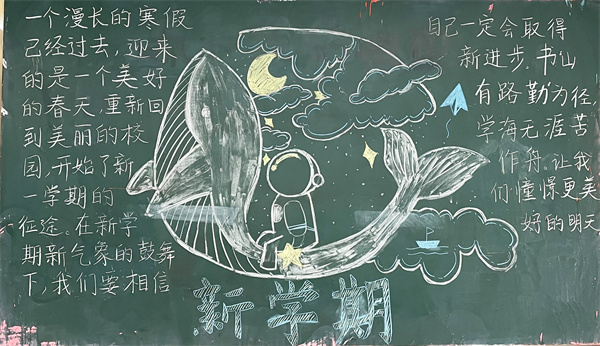 一个漫长的寒假
己经过去,迎来
的是一个美好
的春天,重新回
到美丽的校
园,开始了新
一学期的
征途。在新学
期新气象的鼓舞
下,我们要相信
自己一定会取得
新进步.书山
有路勤为径,
学海无涯苦
作舟.让我
们憧憬更美
好的明天
新学期